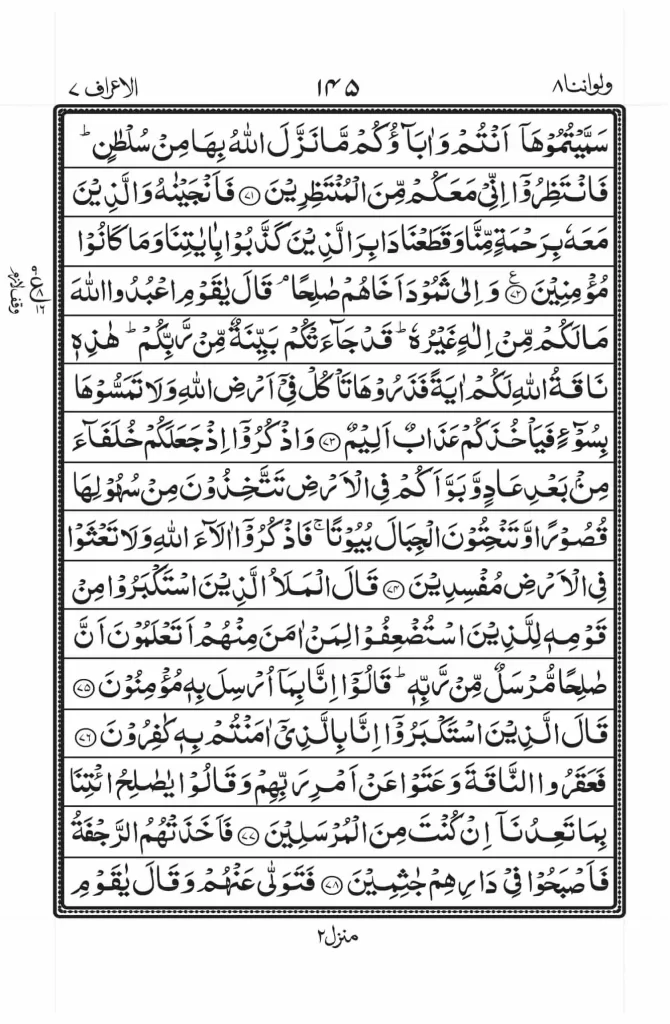 ولواننا ٨
١٤٥
الاعراف ٧
سَمَّيْتُمُوْهَاۤ اَنْتُمْ وَاٰبَآؤُكُمْ مَّا نَزَّلَ اللّٰهُ بِهَا مِنْ سُلْطٰنٍ ؕ
فَانْتَظِرُوْۤا اِنِّيْ مَعَكُمْ مِّنَ الْمُنْتَظِرِيْنَ ﴿٧١﴾ فَاَنْجَيْنٰهُ وَالَّذِيْنَ
مَعَهٗ بِرَحْمَةٍ مِّنَّا وَقَطَعْنَا دَابِرَ الَّذِيْنَ كَذَّبُوْا بِاٰيٰتِنَا وَمَا كَانُوْا
مُؤْمِنِيْنَ ﴿٧٢﴾ ع وَاِلٰى ثَمُوْدَ اَخَاهُمْ صٰلِحًا ۘ قَالَ يٰقَوْمِ اعْبُدُوا اللّٰهَ
مَا لَكُمْ مِّنْ اِلٰهٍ غَيْرُهٗ ؕ قَدْ جَآءَتْكُمْ بَيِّنَةٌ مِّنْ رَّبِّكُمْ ؕ هٰذِهٖ
نَاقَةُ اللّٰهِ لَكُمْ اٰيَةً فَذَرُوْهَا تَاْكُلْ فِيْۤ اَرْضِ اللّٰهِ وَلَا تَمَسُّوْهَا
بِسُوْٓءٍ فَيَاْخُذَكُمْ عَذَابٌ اَلِيْمٌ ﴿٧٣﴾ وَاذْكُرُوْۤا اِذْ جَعَلَكُمْ خُلَفَآءَ
مِنْۢ بَعْدِ عَادٍ وَّبَوَّاَكُمْ فِي الْاَرْضِ تَتَّخِذُوْنَ مِنْ سُهُوْلِهَا
قُصُوْرًا وَّتَنْحِتُوْنَ الْجِبَالَ بُيُوْتًا ۚ فَاذْكُرُوْۤا اٰلَآءَ اللّٰهِ وَلَا تَعْثَوْا
فِي الْاَرْضِ مُفْسِدِيْنَ ﴿٧٤﴾ قَالَ الْمَلَاُ الَّذِيْنَ اسْتَكْبَرُوْا مِنْ
قَوْمِهٖ لِلَّذِيْنَ اسْتُضْعِفُوْا لِمَنْ اٰمَنَ مِنْهُمْ اَتَعْلَمُوْنَ اَنَّ
صٰلِحًا مُّرْسَلٌ مِّنْ رَّبِّهٖ ؕ قَالُوْۤا اِنَّا بِمَاۤ اُرْسِلَ بِهٖ مُؤْمِنُوْنَ ﴿٧٥﴾
قَالَ الَّذِيْنَ اسْتَكْبَرُوْۤا اِنَّا بِالَّذِيْۤ اٰمَنْتُمْ بِهٖ كٰفِرُوْنَ ﴿٧٦﴾
فَعَقَرُوا النَّاقَةَ وَعَتَوْا عَنْ اَمْرِ رَبِّهِمْ وَقَالُوْا يٰصٰلِحُ ائْتِنَا
بِمَا تَعِدُنَاۤ اِنْ كُنْتَ مِنَ الْمُرْسَلِيْنَ ﴿٧٧﴾ فَاَخَذَتْهُمُ الرَّجْفَةُ
فَاَصْبَحُوْا فِيْ دَارِهِمْ جٰثِمِيْنَ ﴿٧٨﴾ فَتَوَلّٰى عَنْهُمْ وَقَالَ يٰقَوْمِ
وقف لازم
منزل ٢